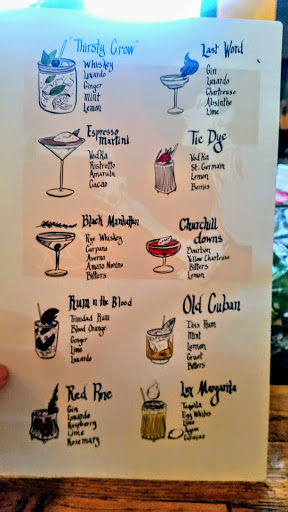 "Thirsty Crow"
Whiskey
Luxardo
Ginger
Mint
Lemon
Last Word
Gin
Luxardo
Chartreuse
Absinthe
Lime
Espresso
Martini
Vodka
Ristretto
Amarula
Cacao
Tie Dye
Vodka
St. Germain
Lemon
Berries
Black Manhattan
Rye Whiskey
Carpano
Averna
Amaro
Bitters
Churchill
downs
Bourbon
Yellow Chartreuse
Bitters
Lemon
Rum n the Blood
Trinidad Rum
Blood Orange
Ginger
Lime
Luxardo
Old Cuban
Rum
Mint
Lemon
Bitters
Red
Gin
Luxardo
Raspberry
Lime
Rosemary
Margarita
Tequila
Egg Whites
Lime
Agave
Curacao